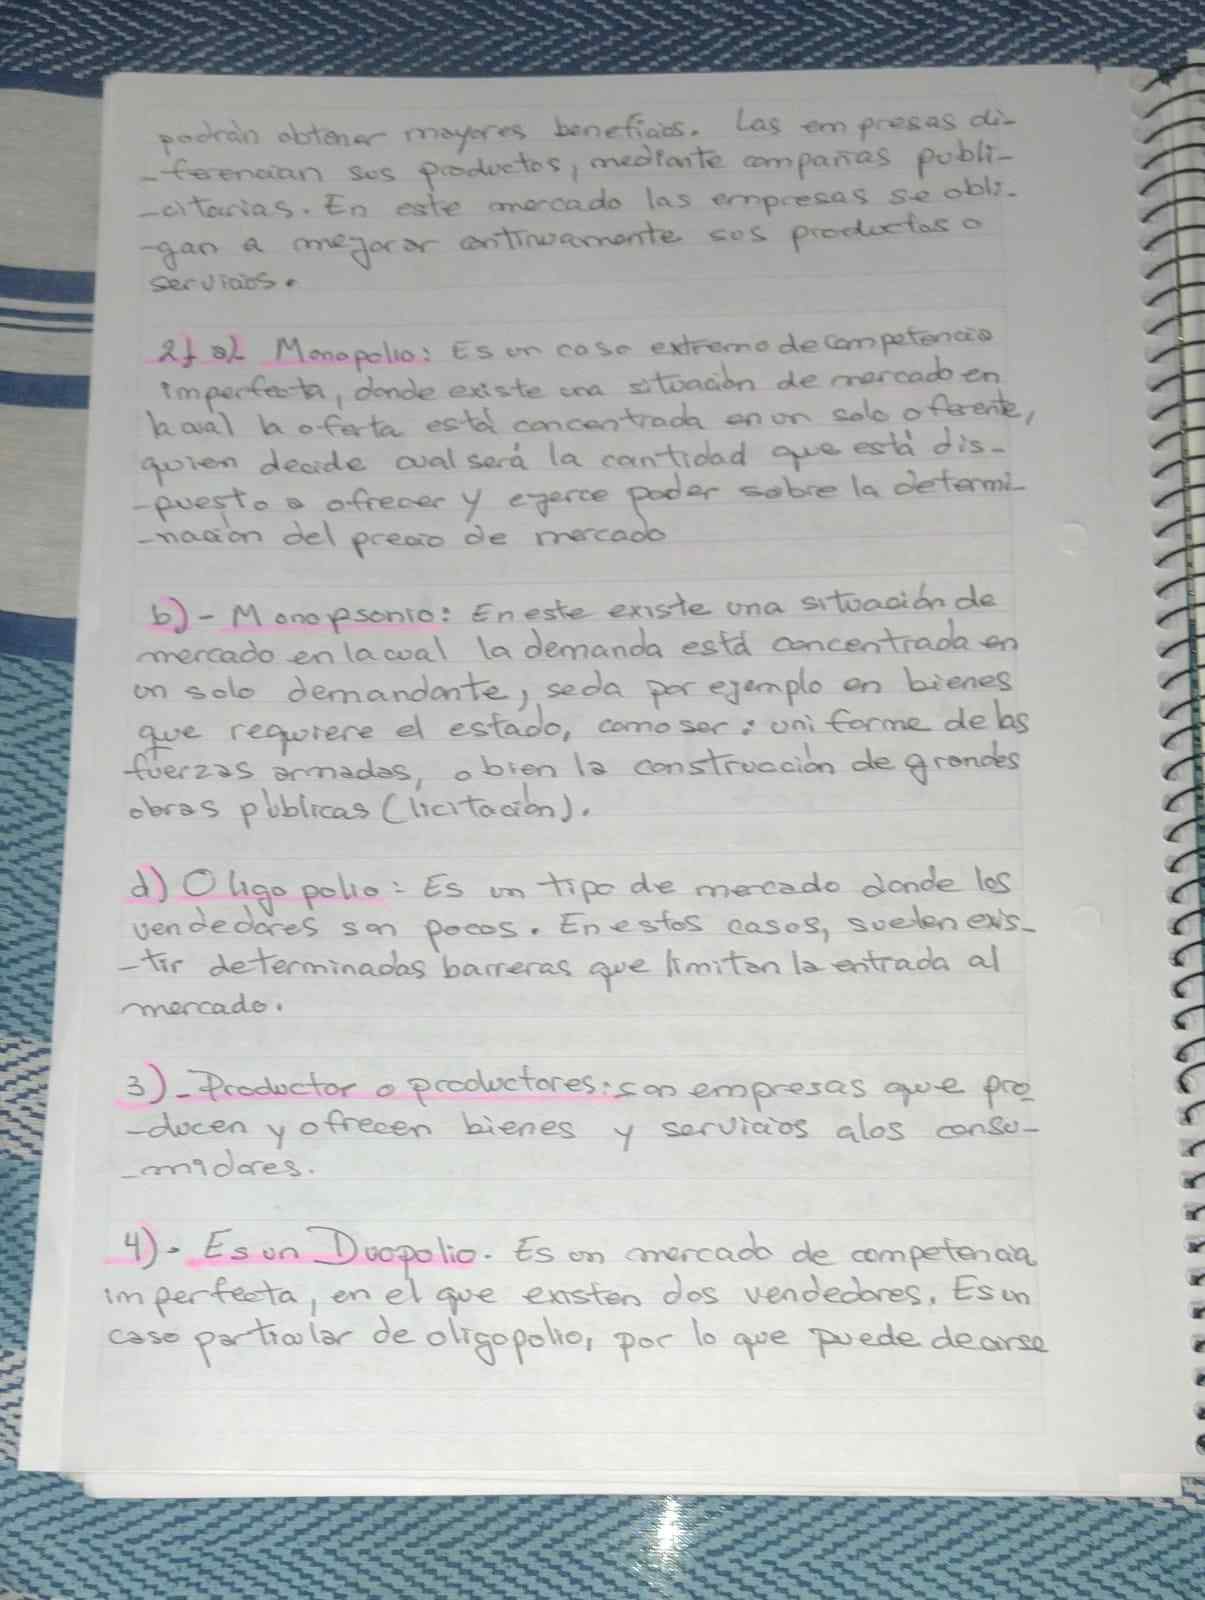 podrán obtener mayores beneficios. Las empresas di-
-ferencian sus productos, mediante compañas publi-
-citarias. En este mercado las empresas se obli-
-gan a mejorar continuamente sus productos o
servicios.
2) a) Monopolio: Es un caso extremo de competencia
imperfecta, donde existe una situación de mercado en
la cual la oferta está concentrada en un solo oferente,
quien decide cual será la cantidad que está dis-
-puesto a ofrecer y ejerce poder sobre la determi-
-nación del precio de mercado
b)- Monopsonio: En este existe una situación de
mercado en la cual la demanda está concentrada en
un solo demandante, se da por ejemplo en bienes
que requiere el estado, como ser: uniforme de las
fuerzas armadas, o bien la construcción de grandes
obras públicas (licitación).
d) Oligopolio: Es un tipo de mercado donde los
vendedores son pocos. En estos casos, suelen exis-
-tir determinadas barreras que limitan la entrada al
mercado.
3)- Productor o productores: son empresas que pro
-ducen y ofrecen bienes y servicios a los consu-
-midores.
4)- Es un Duopolio. Es un mercado de competencia
imperfecta, en el que existen dos vendedores. Es un
caso particular de oligopolio, por lo que puede decirse